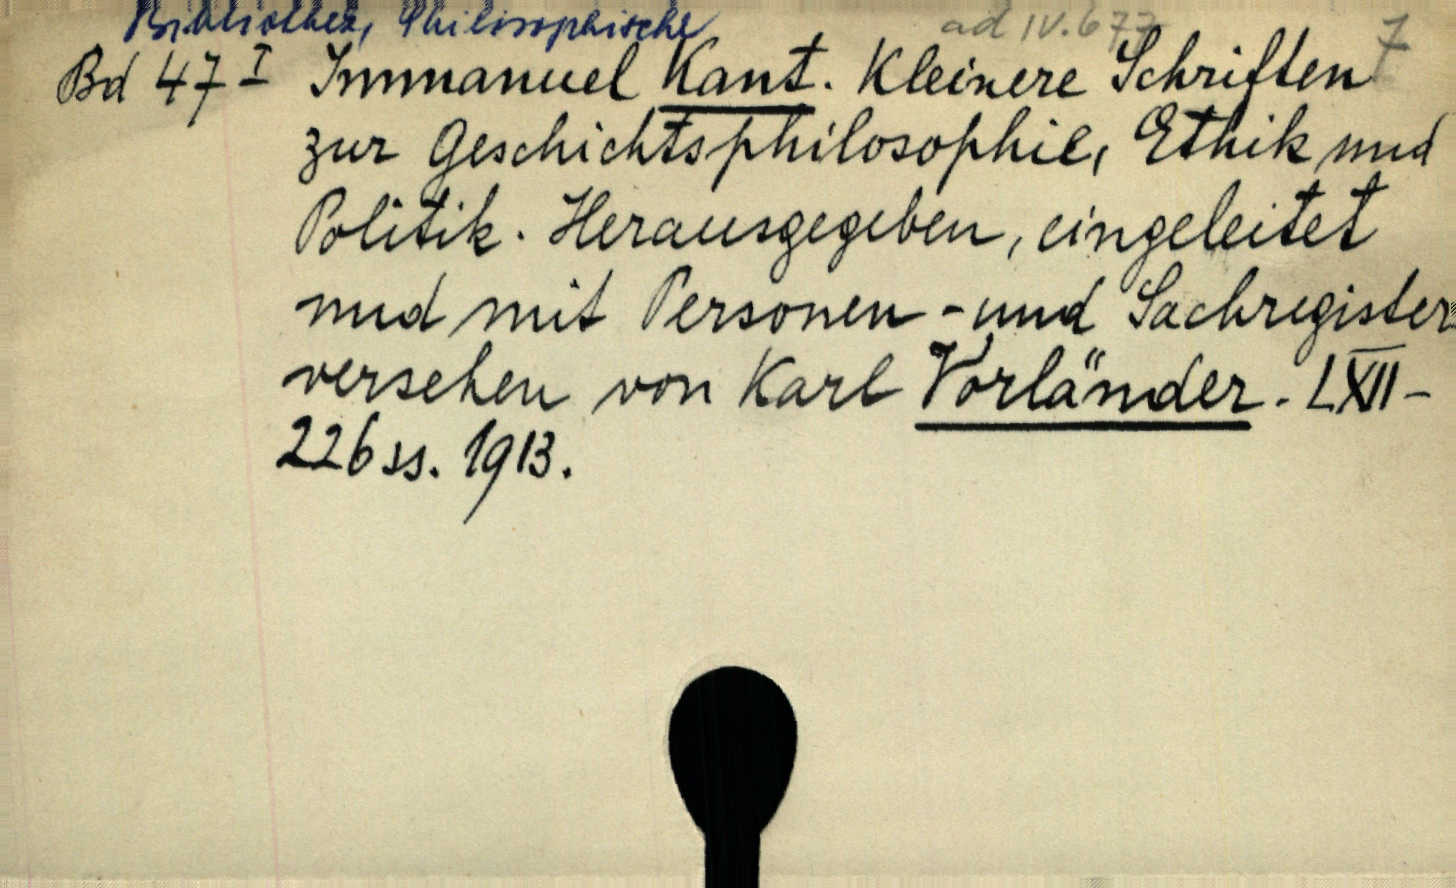 Bibliothek, Philosophische ad IV.677 7
Bd 47 I Immanuel Kant. Kleinere Schriften
zur Geschichtsphilosophie, Ethik und
Politik. Herausgegeben, eingeleitet
und mit Personen - und Sachregister
versehen von Karl Vorländer. LXII-
226 ss. 1913.